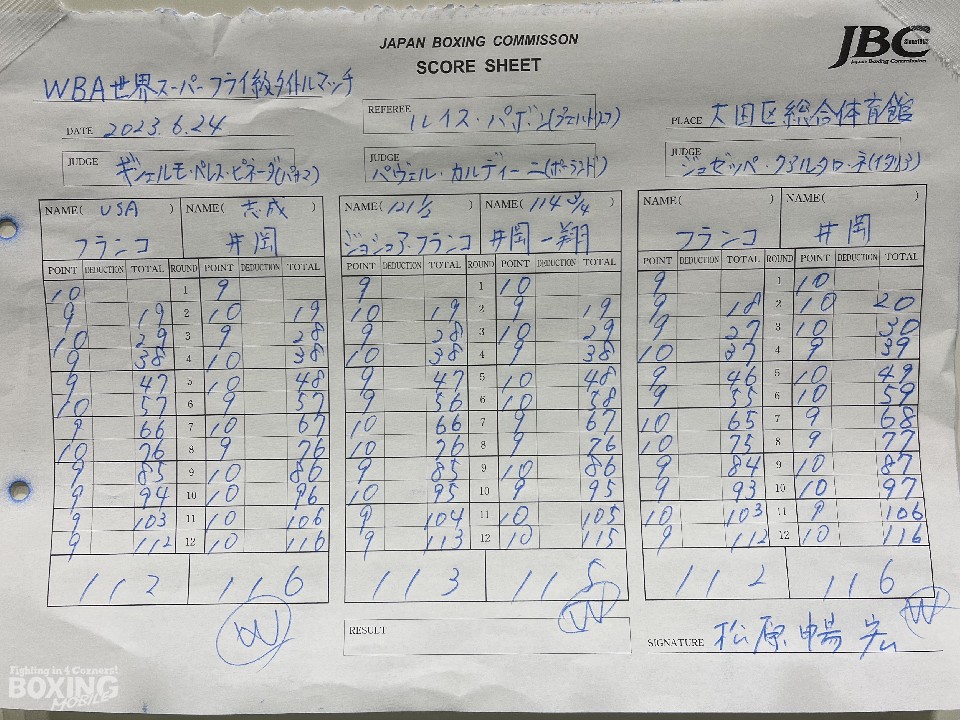 JAPAN BOXING COMMISSON
SCORE SHEET
JBC
Since1952
Japan Boxing Commission
WBA世界スーパーフライ級タイトルマッチ
DATE 2023.6.24
REFEREE ルイス・パボン(プエルトリコ)
PLACE 大田区総合体育館
JUDGE ギジェルモ・ペレス・ピネーダ(パナマ)
JUDGE パヴェル・カルディーニ(ポーランド)
JUDGE ジュゼッペ・クアルタローネ(イタリア)
NAME( USA ) NAME( 志成 ) NAME( 121 1/2 ) NAME( 114 3/4 ) NAME( ) NAME( )
フランコ 井岡 ジョシュア・フランコ 井岡一翔 フランコ 井岡
POINT DEDUCTION TOTAL ROUND POINT DEDUCTION TOTAL POINT DEDUCTION TOTAL ROUND POINT DEDUCTION TOTAL POINT DEDUCTION TOTAL ROUND POINT DEDUCTION TOTAL
10 1 9 9 1 10 9 1 10
9 19 2 10 19 10 19 2 9 19 9 18 2 10 20
10 29 3 9 28 9 28 3 10 29 9 27 3 10 30
9 38 4 10 38 10 38 4 9 38 10 37 4 9 39
9 47 5 10 48 9 47 5 10 48 9 46 5 10 49
10 57 6 9 57 9 56 6 10 58 9 55 6 10 59
9 66 7 10 67 10 66 7 9 67 10 65 7 9 68
10 76 8 9 76 10 76 8 9 76 10 75 8 9 77
9 85 9 10 86 9 85 9 10 86 9 84 9 10 87
9 94 10 10 96 10 95 10 9 95 9 93 10 10 97
9 103 11 10 106 9 104 11 10 105 10 103 11 9 106
9 112 12 10 116 9 113 12 10 115 9 112 12 10 116
112 116 113 115 112 116
W W W
RESULT
SIGNATURE 松原暢宏
Fighting in 4 Corners!
BOXING
MOBILE